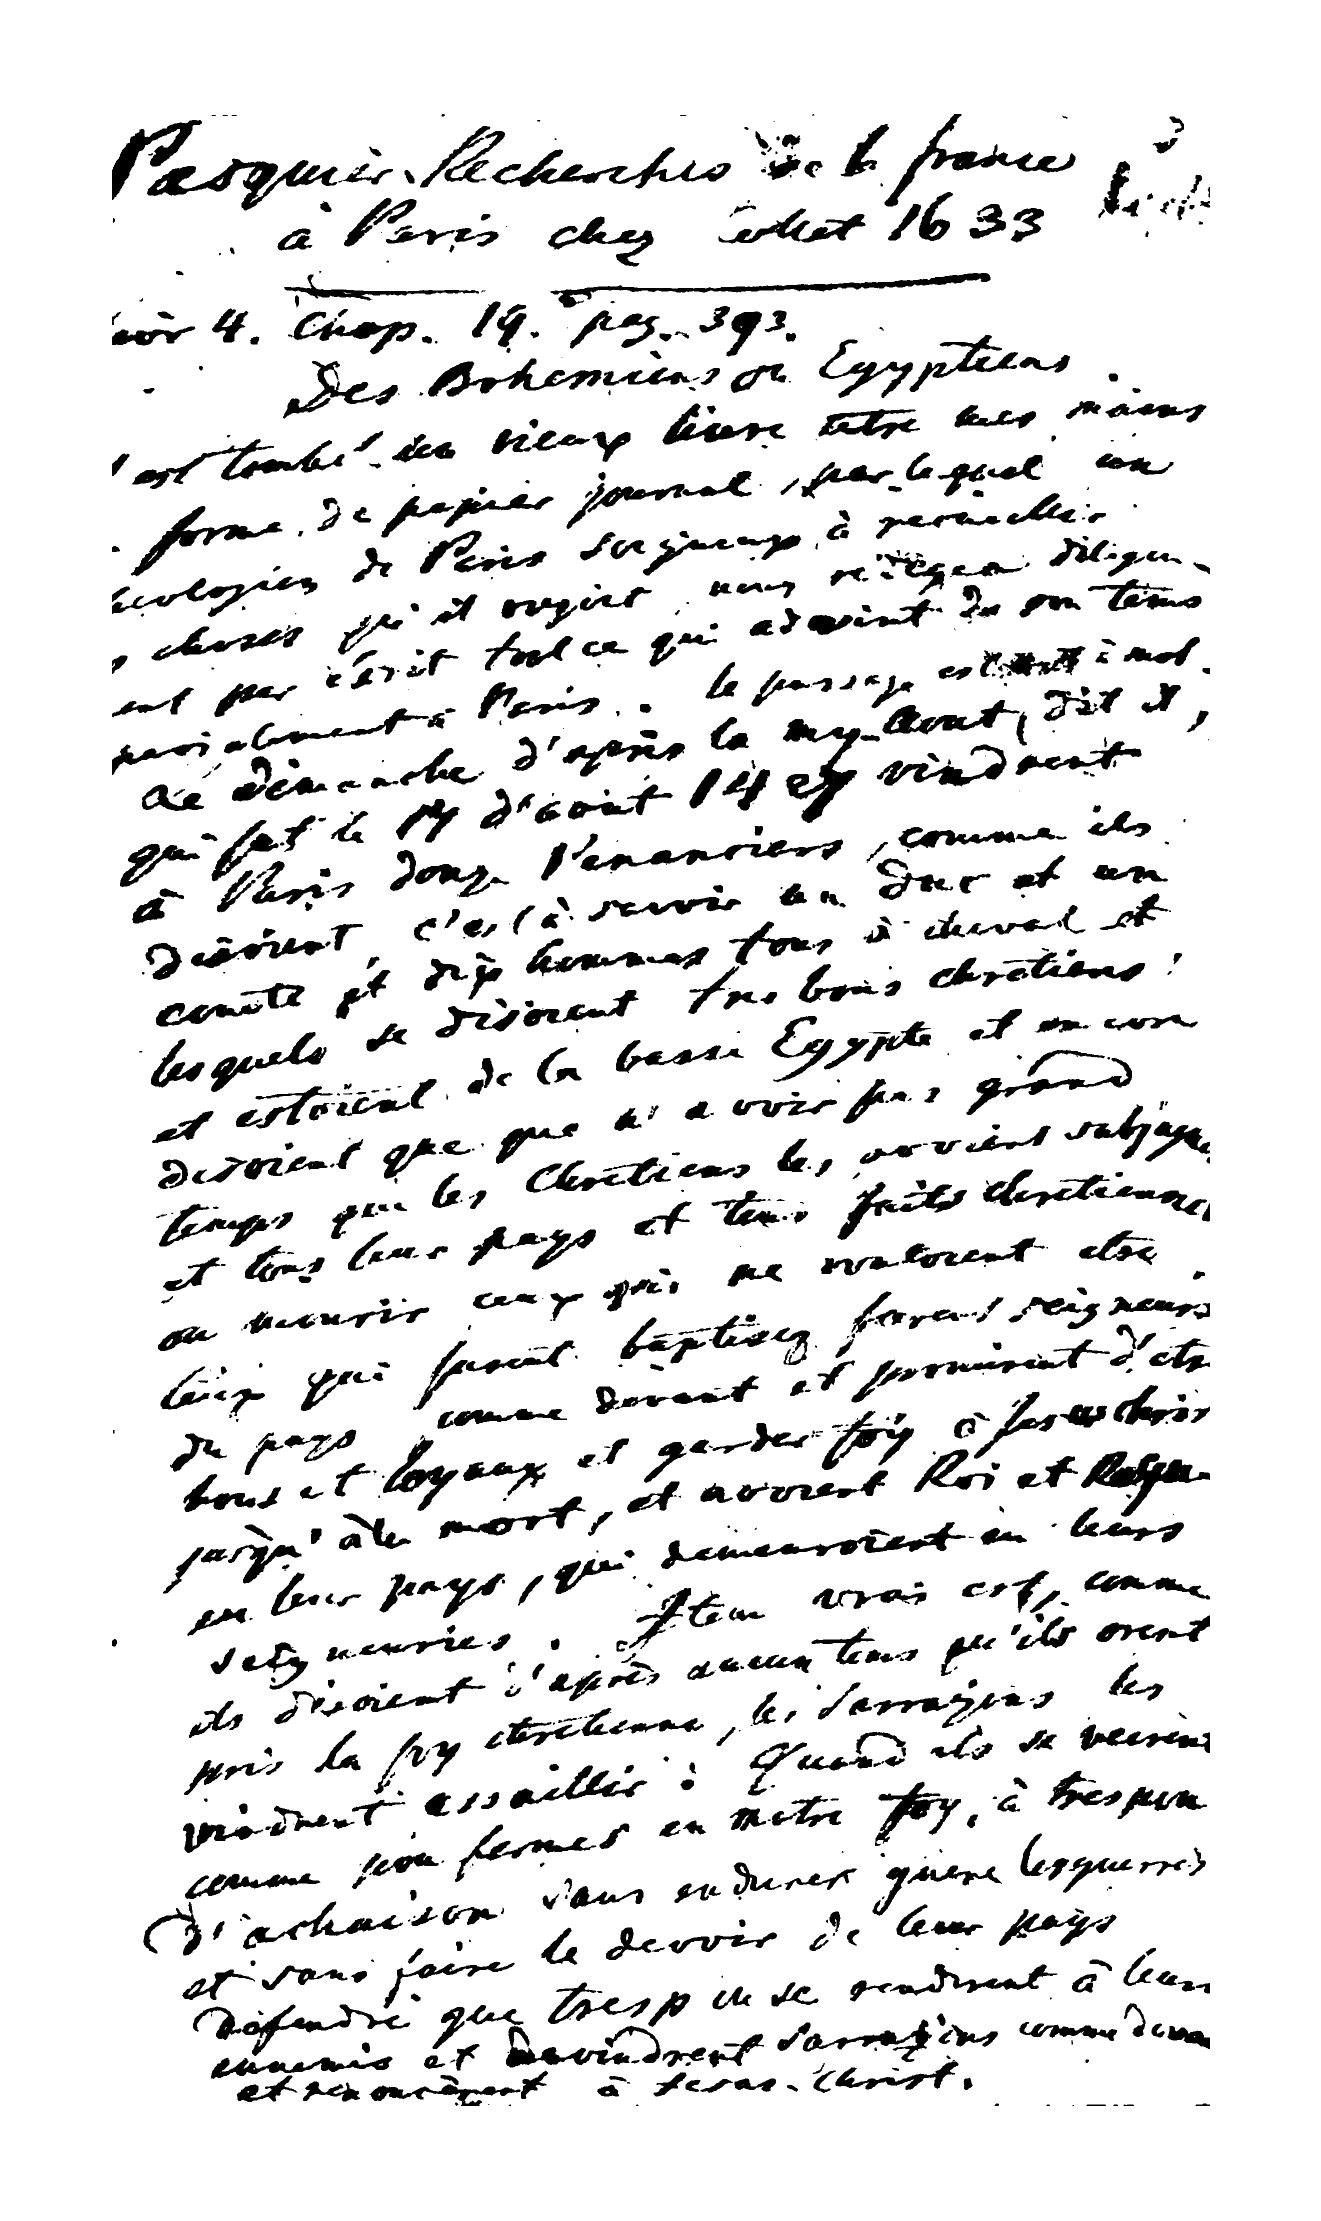 Pasquier. Recherches de la france
3
à Paris chez collet 1633
4. Chap. 19. pag. 393.
Des Bohemiens ou Egyptiens.
est tombé un vieux livre entre mes mains
forme de papier journal, par lequel un
eologien de Paris soigneux à recueillir
choses qu'il voyoit nous redigea diligem-
ent par écrit tout ce qui advint de son tems
à Paris. le passage est mot à mot.
Le dimanche d'après la my-Aout, dit il,
qui fut le 17 d'aout 1427 vindrent
à Paris douze Penanciers, comme ils
disoient, c'est à savoir un Duc et un
comte et dix hommes tous à cheval et
lesquels se disoient tres bons chretiens:
et estoient de la basse Egypte et encore
disoient que que n'avoir pas grand
temps que les Chretiens les avoient subjugue
et tous leur pays et tous faits chretienner
ou mourir ceux qui ne vouloient etre.
ceux qui furent baptisez furent seigneurs
du pays comme devant et promirent d'etre
bons et loyaux et garder foy à Jesus Chris
jusqu'à la mort, et avoient Roi et Reyne
en leur pays, qui demeuroient en leurs
seigneuries. Item vrai est, comme
ils disoient d'après aucun tems qu'ils orent
pris la foy chretienne, les Sarrazins les
vindrent assaillir: Quand ils se veirent
comme peu fermes en nostre foy, à tres peu
d'achaison sans endurer guere les guerres
et sans faire le devoir de leur pays
defendre que tres peu se rendirent à leurs
ennemis et devindrent Sarrazins comme devan
et renoncèrent à Jesus-Christ.